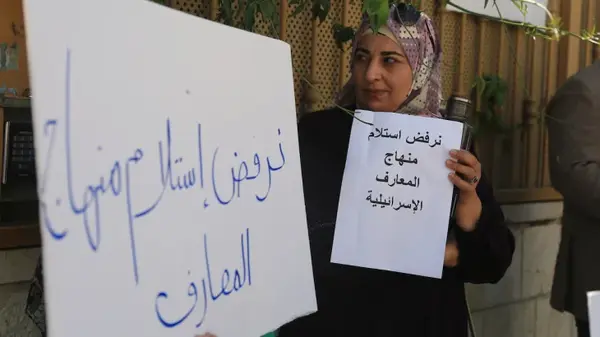 نرفض إستلام منهاج
المعارف
نرفض استلام
منهاج
المعارف
الإسرائيلية